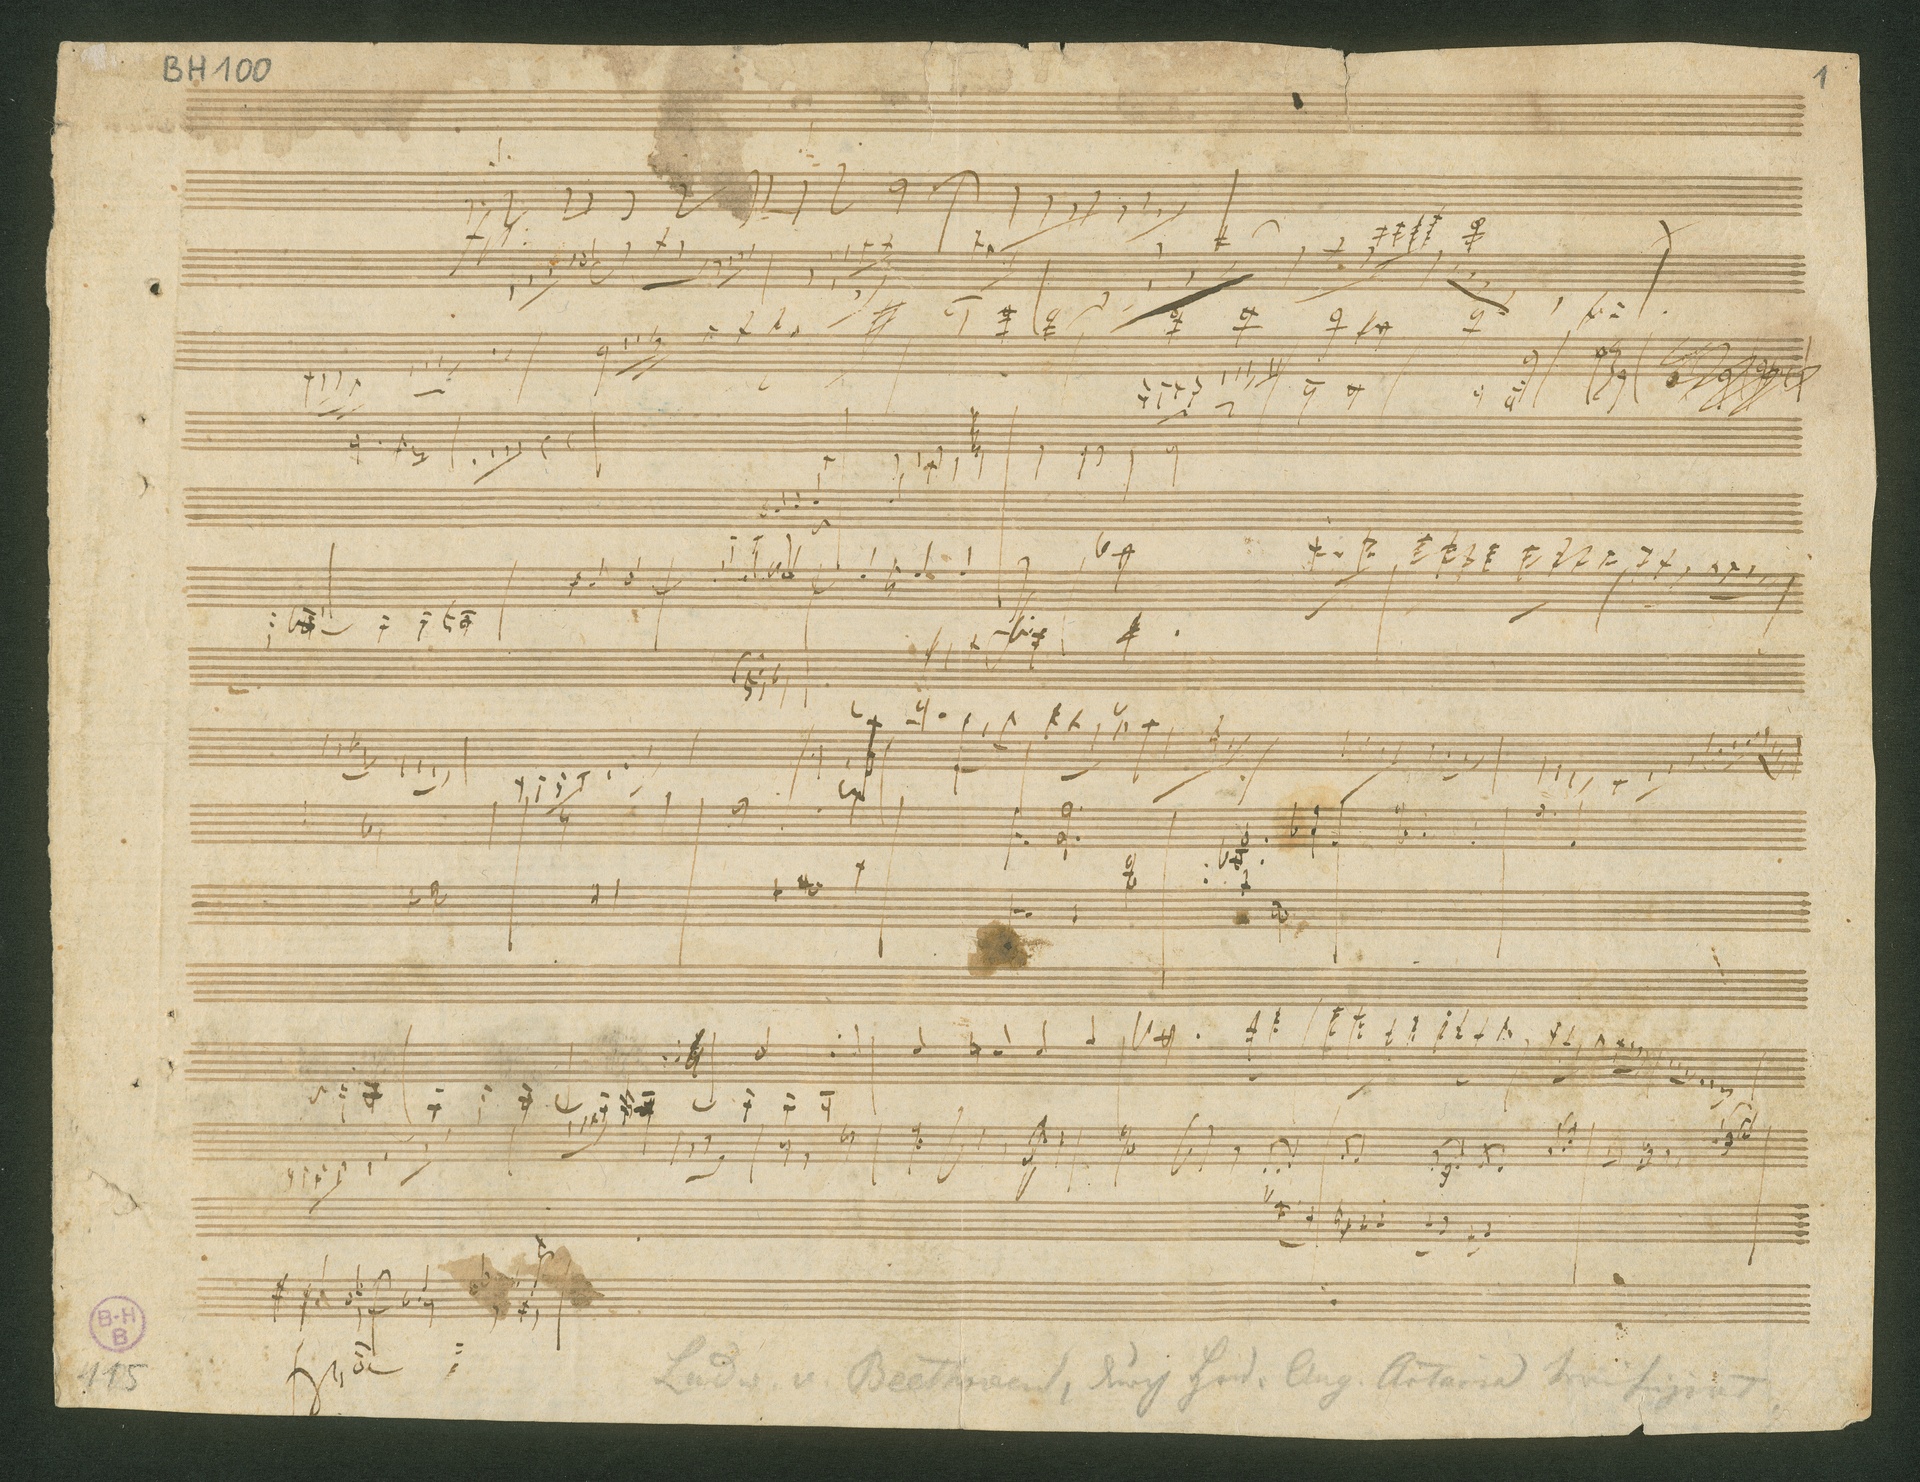 BH 100
1
B-H
B
115
Ludw. v. Beethoven, durch Hrn. Aug. Artaria